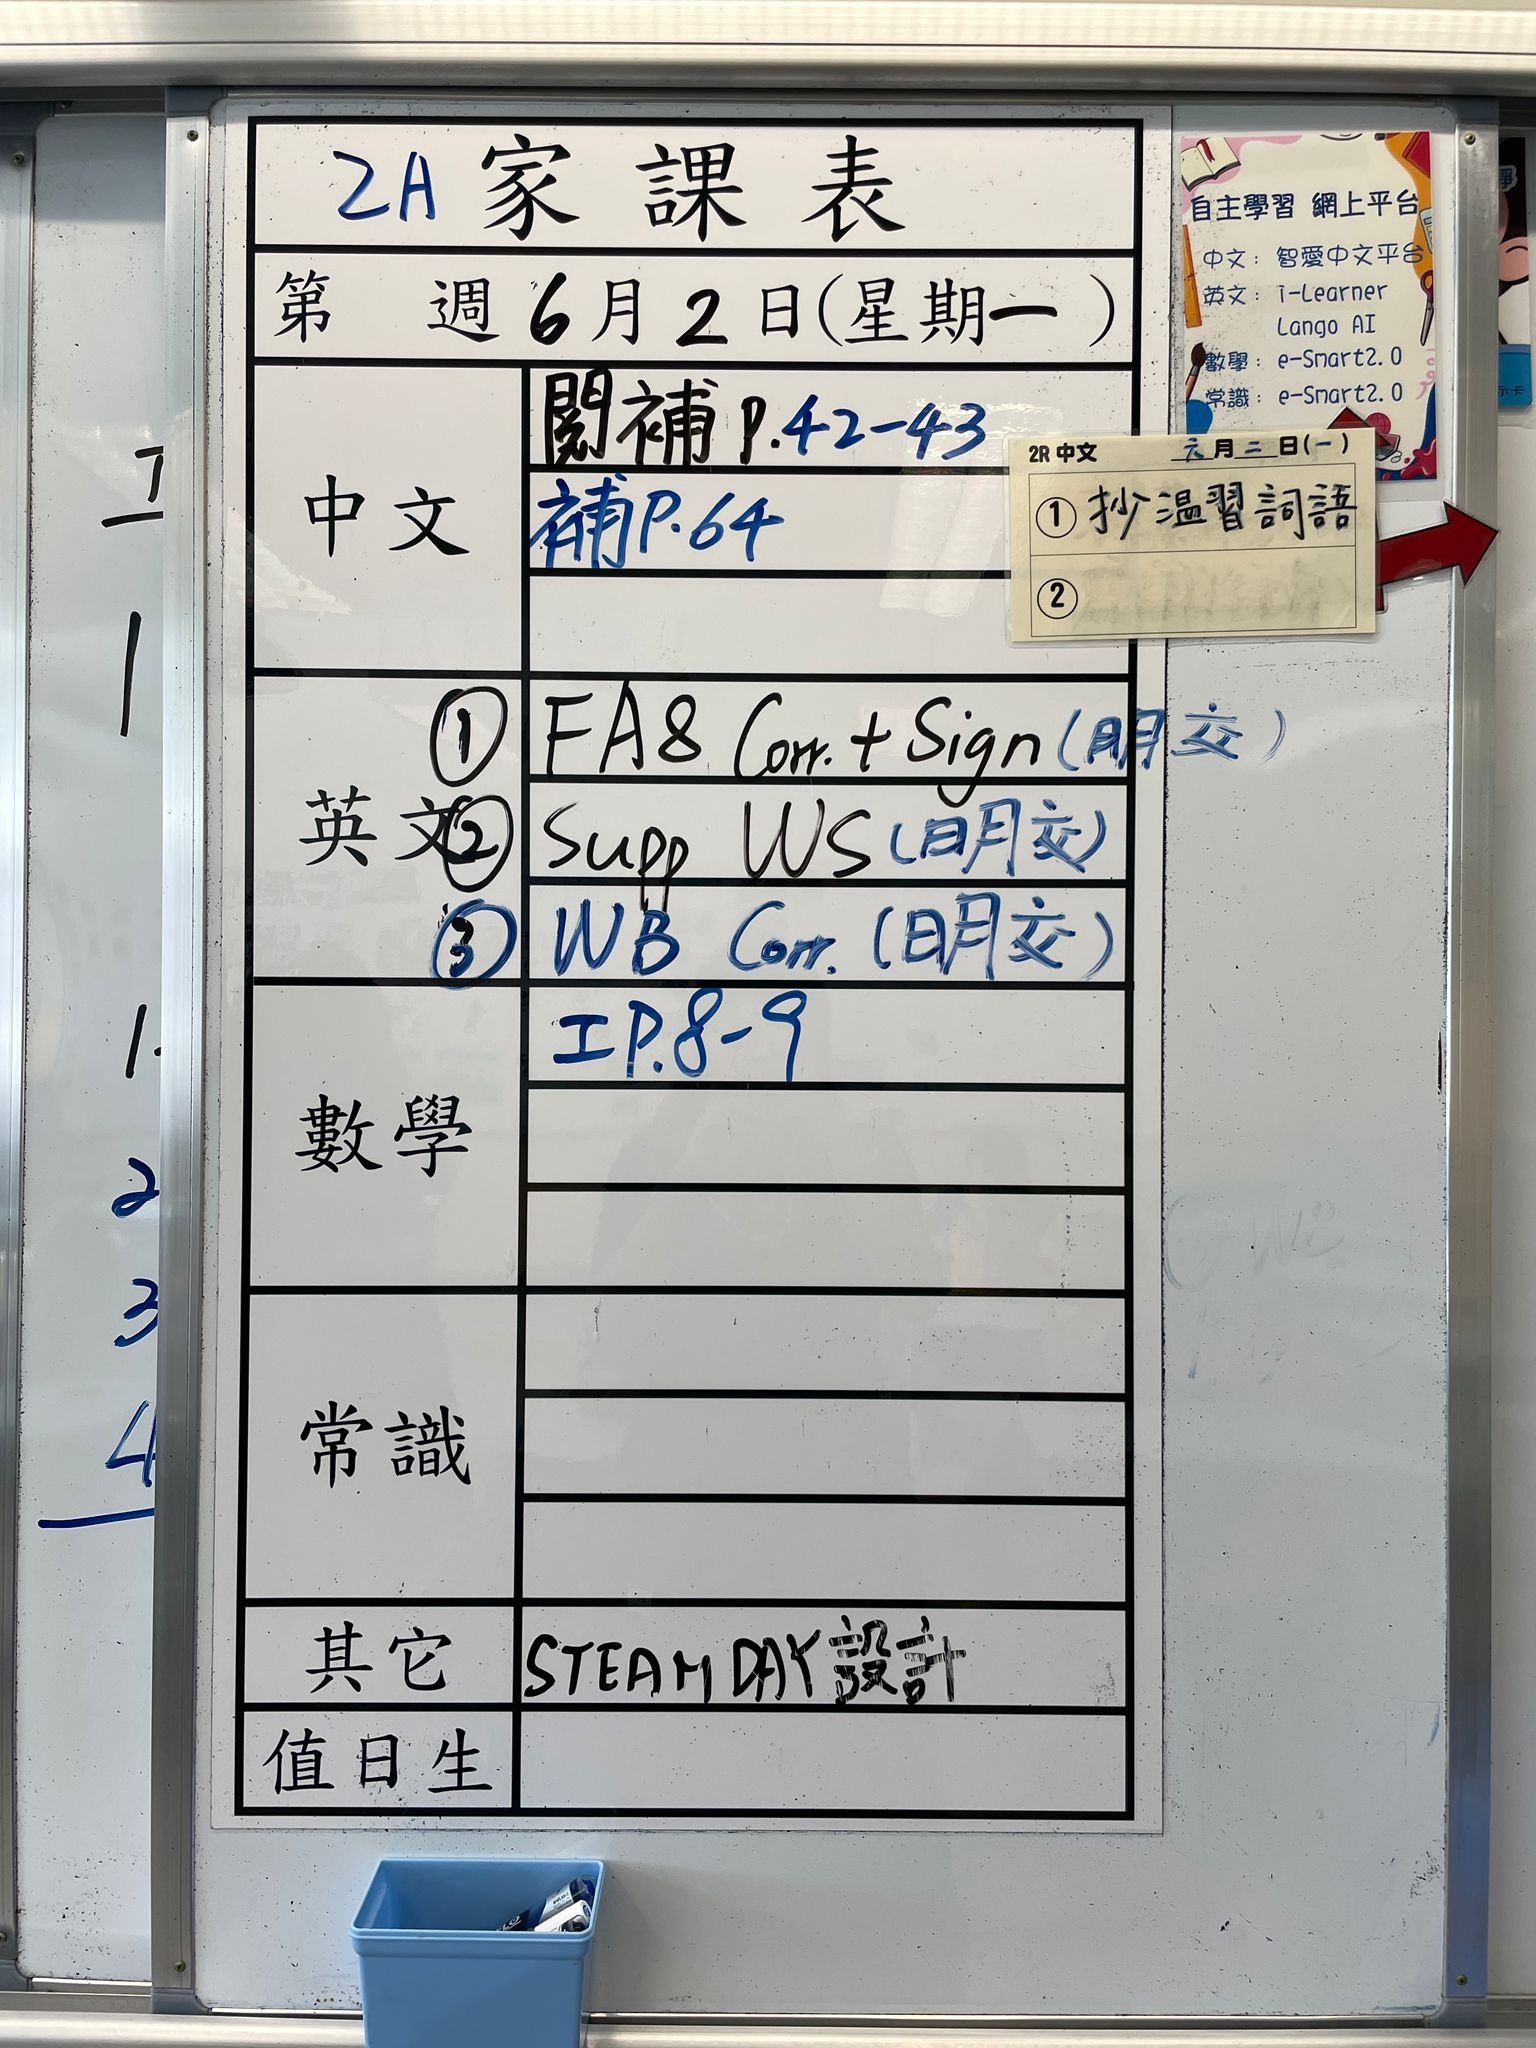 2A 家課表
第 週 6月2日(星期一)
中文
閱補 P.42-43
補P.64
英文
① FA8 Corr. + Sign (明交)
② Supp WS (明交)
③ WB Corr. (明交)
數學
工P.8-9
常識
其它
STEAM DAY 設計
值日生
自主學習 網上平台
中文: 智愛中文平台
英文: i-Learner
Lango AI
數學: e-Smart2.0
常識: e-Smart2.0
2R 中文 六月二日(一)
① 抄溫習詞語
②
1.
2
3
4
示卡